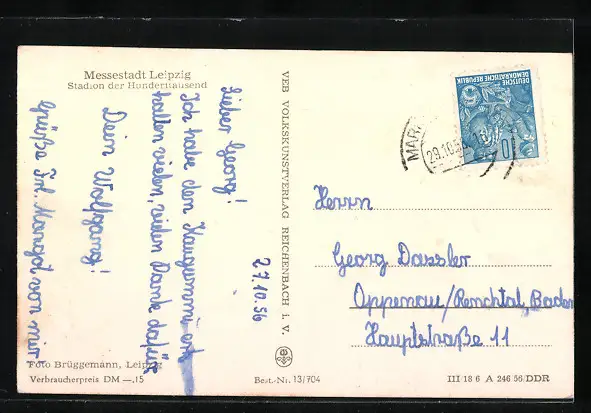 Messestadt Leipzig
Stadion der Hunderttausend
27.10.56
Lieber Georg!
Ich habe den Kaugummi er-
halten vielen, vielen Dank dafür
Dein Wolfgang!
Grüße Frl. Margot von mir
Foto Brüggemann, Leipzig
Verbraucherpreis DM —.15
VEB VOLKSKUNSTVERLAG REICHENBACH I. V.
Best.-Nr. 13/704
DEUTSCHE
DEMOKRATISCHE REPUBLIK
10
MAR
29.10.56
Herrn
Georg Dassler
Oppenau/Renchtal, Baden
Hauptstraße 11
III 18 6 A 246 56 DDR